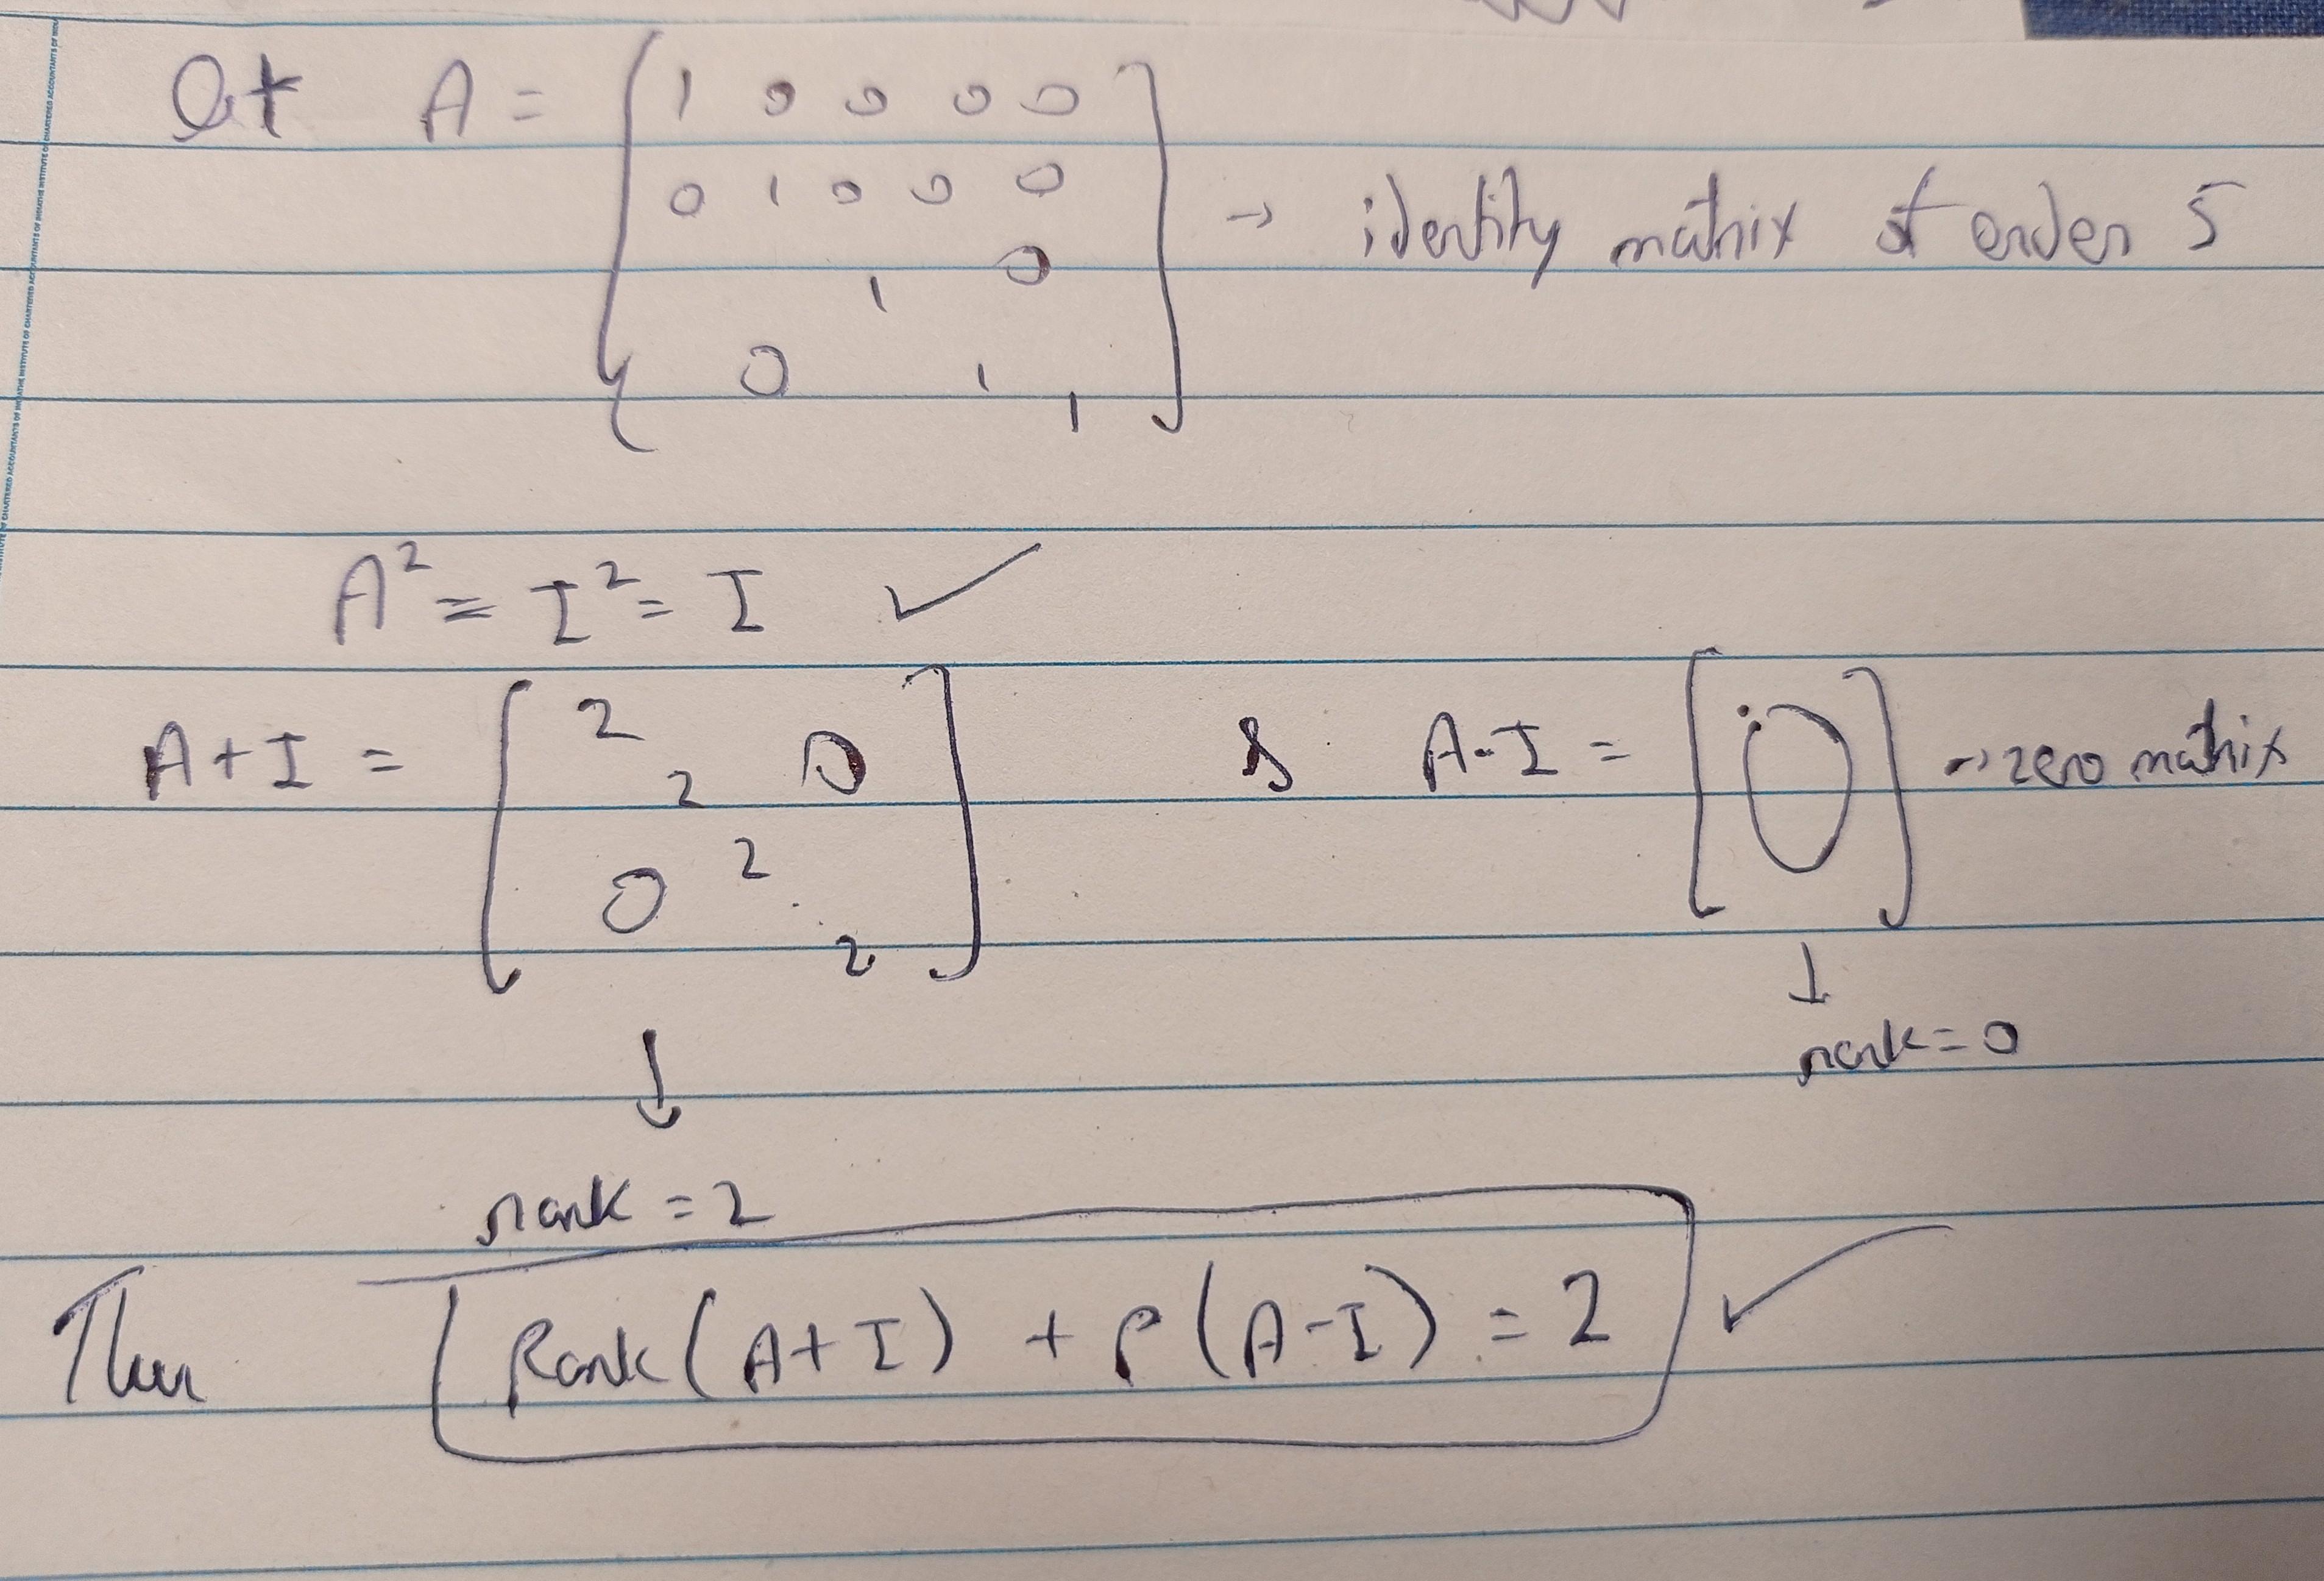 let A = [ 1 0 0 0 0
0 1 0 0 0
1 0
0 1
1 ] → identity matrix of order 5
A² = I² = I ✓
A + I = [ 2 0
2
0 2
. .
2 ] & A - I = [ 0 ] → zero matrix
↓
rank = 0
↓
rank = 2
Then Rank(A + I) + ρ(A - I) = 2 ✓